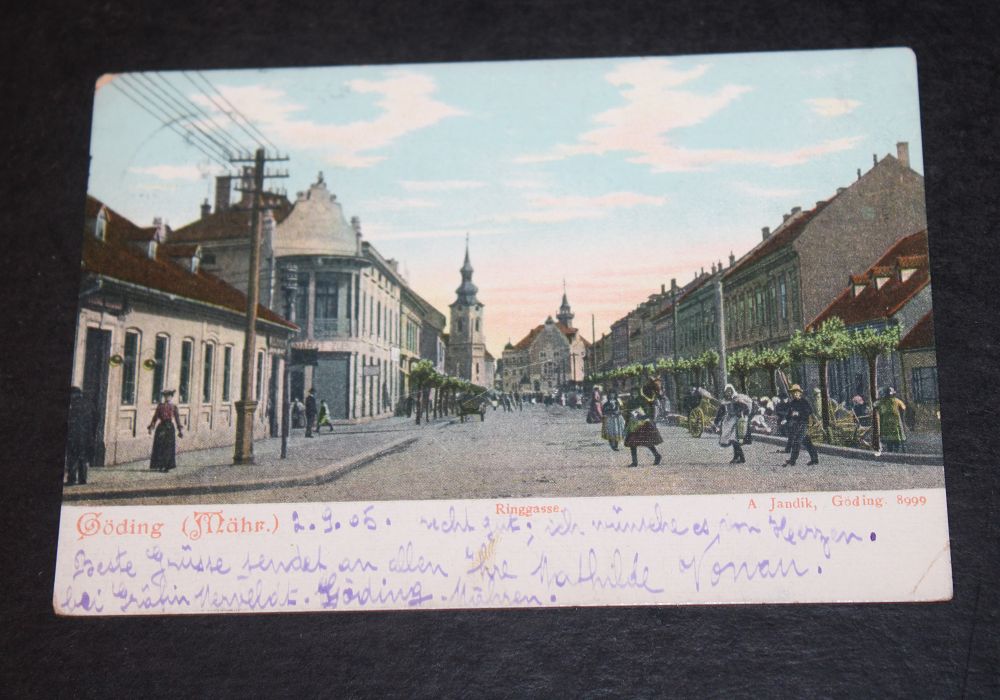 Göding (Mähr.) 2.9.05. recht gut; ich wünsche es von Herzen.
Ringgasse.
A Jandík, Göding. 8999
Beste Grüsse sendet an allen Ihre Mathilde Vonau.
bei Gräfin Merveldt. Göding. Mähren.